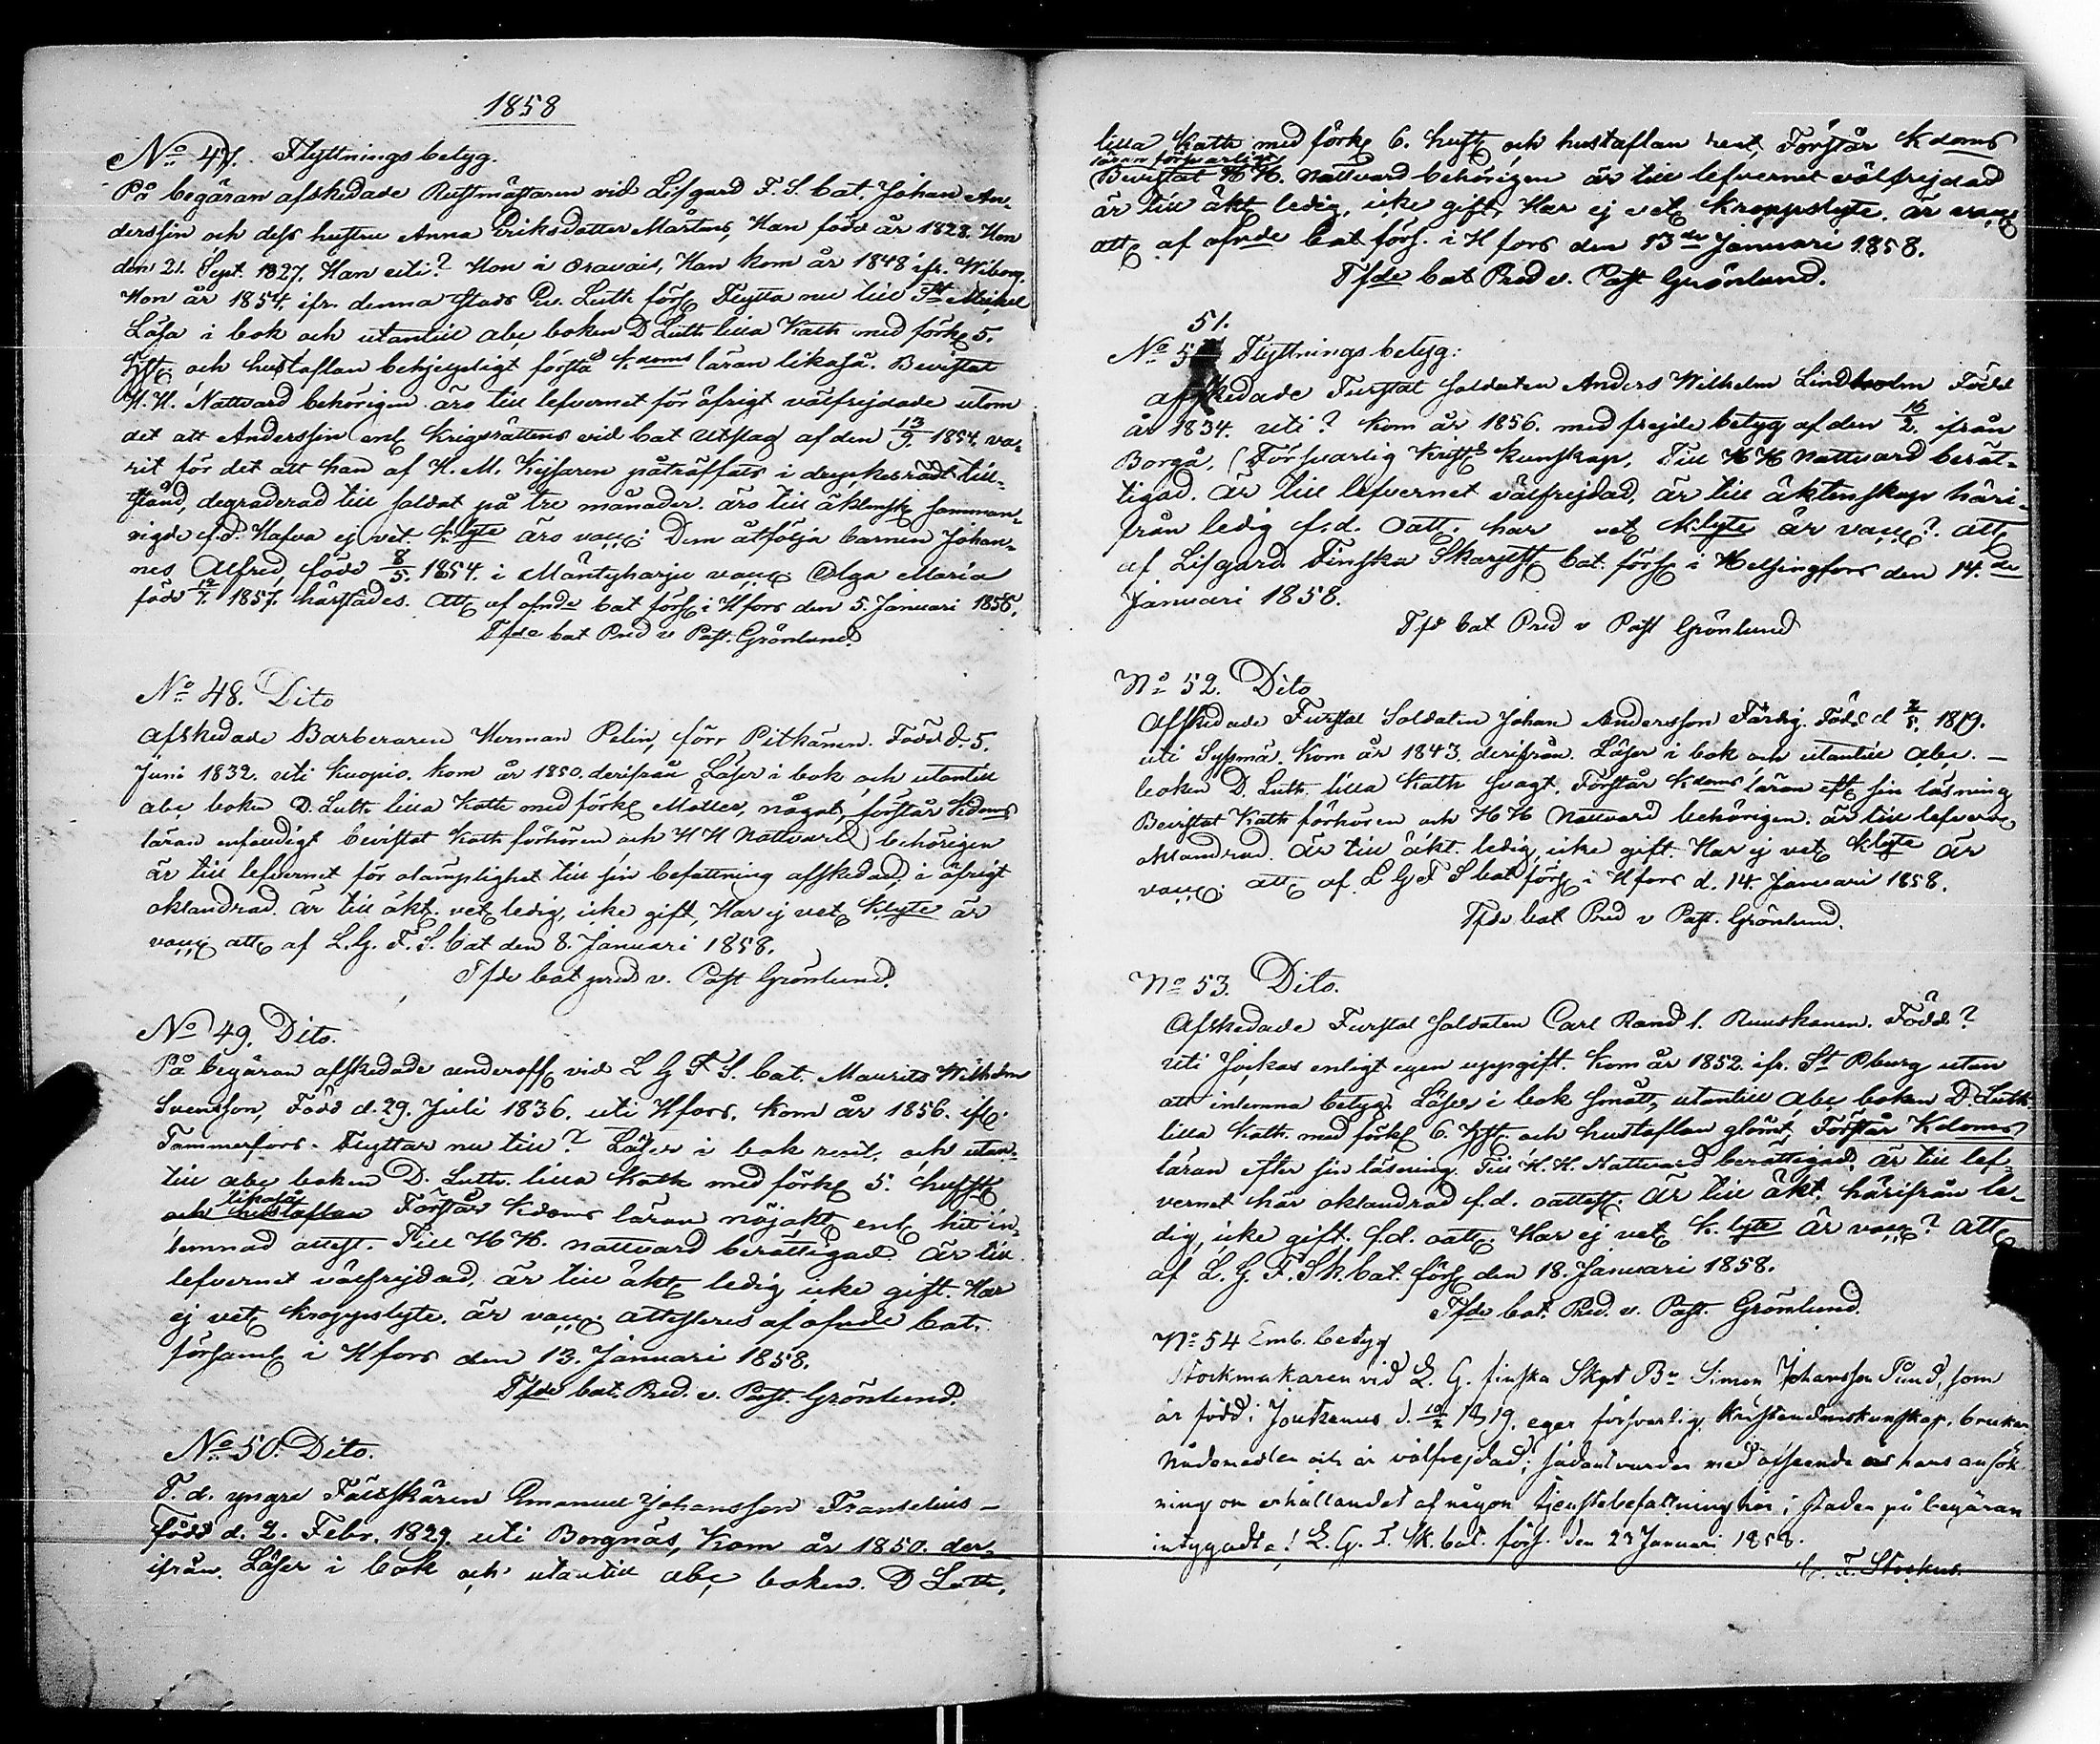 1858
No 47. Flyttningsbetyg.
På begäran afskedade Rustmästaren vid Lifgard. F. S. bat. Johan An-
dersin och dess hustru Anna Eriksdotter Mårtens, Han född år 1828. Hon
den 21. Sept. 1827. Han uti? Hon i Oravais, Han kom år 1848 ifr. Wiborg.
Hon år 1854, ifr. denna stads Sv. Luth. förs. Flytta nu till St Mickel
Läsa i bok och utantill abc boken D Luth lilla Kath med förkl 5.
Hst. och hustaflan behjelpligt förstå Kdoms läran likaså. Bevistat
H. H. Nattvard behörigen äro till lefvernet för öfrigt välfrejdade utom
det att Anderssin enl Krigsrättens vid bat utslag af den 13/9. 1854. va-
rit för det att han af H. M. Kejsaren påträffats i dryckesrådt till-
stånd, degraderad till soldat på tre månader. äro till äktensk samman-
vigde f.d. Hafva ej vet. K.lyte äro vacc: Dem åtfölja barnen Johan-
nes Alfred, född 8/5. 1854. i Mäntyharju vacc Olga Maria
född 12/7. 1857. härstädes. Att af ofnde bat förs i Hfors den 5. Januari 1858.
Tfde bat Pred v Past. Grönlund.
No 48. Dito
Afskedade Barberaren Herman Pelin, förr Pitkänen. Född d. 5.
Juni 1832. uti Kuopio. kom år 1850. derifrån Läser i bok och utantill
abc boken D. Luth. lilla Kath med förkl Möller, något, förstår Kdoms
läran enfaldigt bevistat Kath förhören och H H Nattvard behörigen
är till lefvernet för olämplighet till sin befattning afskedad, i öfrigt
oklandrad. är till äkt. vet, ledig, icke gift, Har ej vet, K.lyte är
vacc att af L. G. F. S. bat den 8. Januari 1858.
Tfde bat pred v. Past Grönlund.
No 49. Dito.
På begäran afskedade underoff vid L G F S. bat. Maurits Wilhelm
Svensson, Född d. 29. Juli 1836. uti Hfors. Kom år 1856. ifr.
Tammerfors. Flyttar nu till? Läser i bok rent, och utan-
till abc boken D. Luth. lilla Kath med förkl 5. hufst
likaså
och hustaflan Förstår Kdoms läran nöjakt enl hit in-
lemnad attest. Till H H. Nattvard berättigad är till
lefvernet välfrejdad, är till äkt, ledig icke gift. Har
ej vet, Kroppslyte. är vacc. attesteras af ofnde bat.
församl i Hfors den 13. Januari 1858.
Tfde bat. Pred. v. Past. Grönlund.
No 50. Dito.
F. d. yngre Fältskären Emanuel Johansson Franselius -
Född d. 2. Febr. 1829. uti Borgnäs, Kom år 1850. der-
ifrån. Läser i bok och utantill abc boken. D Luth,
lilla Kath med förkl 6. hust och hustaflan rent, Förstår Kdoms
läran försvarligt
Bevistat H H. Nattvard behörigen är till lefvernet välfrejdad
är till äkt ledig, icke gift, Har ej vet Kroppslyte. är vacc
att af ofnde bat förs. i H fors den 13de Januari 1858.
Tfde bat Pred v. Past Grönlund.
51.
No 5 Flyttningsbetyg:
afskedade Furstat Soldaten Anders Wilhelm Lindholm Född
år 1834. uti? Kom år 1856. med frejdebetyg af den 16/2. ifrån
Borgå. (Försvarlig Krist. kunskap, Till H H Nattvard berät-
tigad. är till lefvernet välfrejdad, är till äktenskap häri-
från ledig f.d. Oatt. har vet, K.lyte är vacc? att
af Lifgard. Finska Skarpsk bat. förs i Helsingfors den 14.de
Januari 1858.
Tfd bat Pred v Past Grönlund
No 52. Dito
Afskedade Furstat Soldaten Johan Andersson Färdig. Född d 2/5. 1819.
uti Sysmä. Kom år 1843. derifrån. Läser i bok och utantill abc. -
boken D. Luth. lilla Kath svagt. Förstår Kdoms läran eft sin läsning
Bevistat Kath förhören och H H Nattvard behörigen. är till lefvern,
oklandrad. är till äkt. ledig, icke gift. Har ej vet, K.lyte är
vacc. att af L G F S bat förs i Hfors d. 14. Januari 1858.
Tfde bat Pred v Past. Grönlund.
No 53. Dito.
Afskedade Furstat Soldaten Carl Rand l. Ruuskanen. Född?
uti Jockas enligt egen uppgift. Kom år 1852. ifr. St Pburg utan
att inlemna betyg. Läser i bok smått, utantill abc boken D. Luth
lilla Kath. med förkl 6. Hst och hustaflan glömt, Förstår Kdoms
läran efter sin läsning. Till H. H. Nattvard berättigad, är till lef-
vernet här oklandrad f.d. oattest. är till äkt. härifrån le-
dig, icke gift. f.d. oatt. Har ej vet K. lyte är vacc? att
af L. G. F. Sk. bat. förs den 18. Januari 1858.
Tfde bat. Pred. v. Past. Grönlund.
No 54 Emb. betyg
Stockmakaren vid L. G. finska Skpt Bn Simon Johansson Pund, som
är född i Joutsenus d. 10/2 1819, eger försvarlig Kristendomskunskap, brukar
Nådemedlen och är välfrejdad; sådant varder med afseende å hans ansök-
ning om erhållandet af någon tjenstebefattning här i staden på begäran
intygadt! L. G. F. Sk. bat. förs. den 23 Januari 1858.